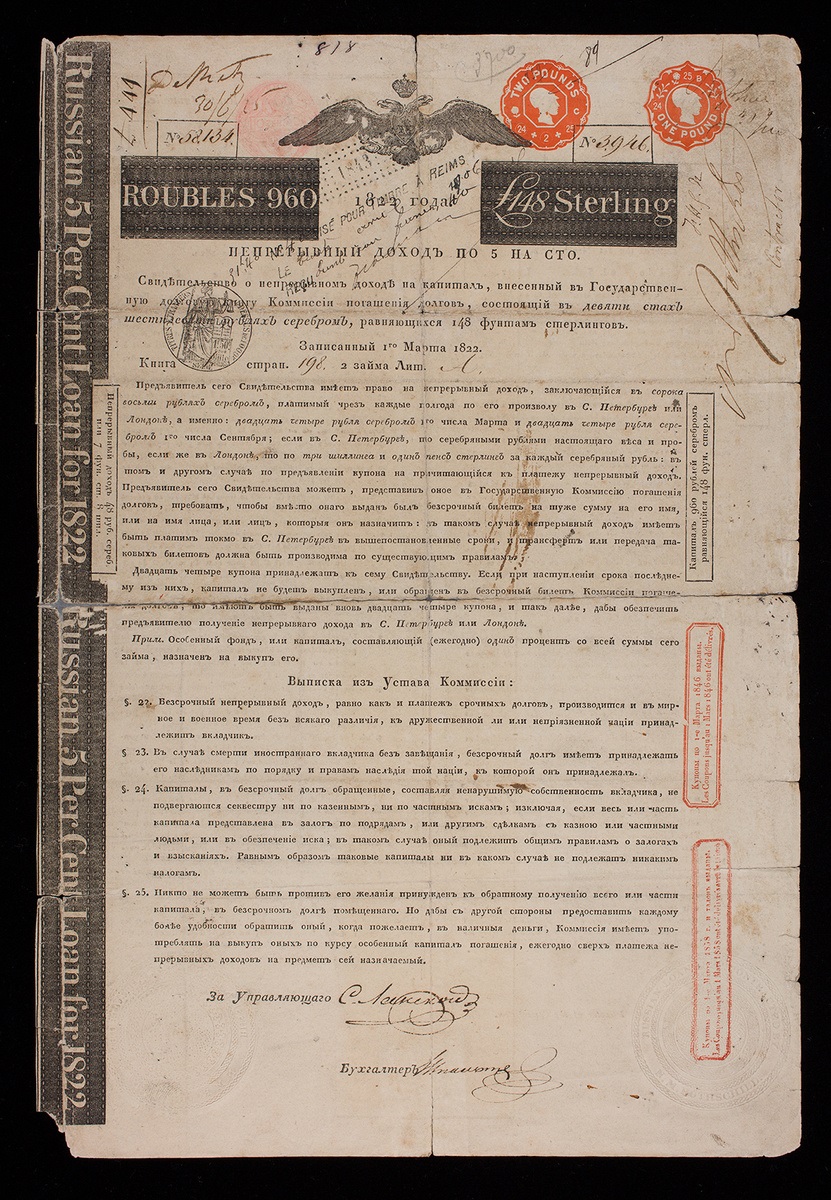 Russian 5 Per Cent Loan for 1822
Russian 5 Per Cent Loan for 1822
818
3700
89
£ 444
30/6 25
TWO POUNDS
24 + 2 + 25
25 B
24
ONE POUND
No 58134.
No 3946.
1843
ROUBLES 960
1822 года
£148 Sterling
НЕПРЕРЫВНЫЙ ДОХОДЪ ПО 5 НА СТО.
Свидѣтельство о непрерывномъ доходѣ на капиталъ, внесенный въ Государствен-
ную долговую книгу Коммисіи погашенія долговъ, состоящій въ девяти стахъ
шестидесяти рубляхъ серебромъ, равняющихся 148 фунтамъ стерлинговъ.
Записанный 1го Марта 1822.
Книга стран. 198. 2 займа Лит. А.
Предъявитель сего Свидѣтельства имѣетъ право на непрерывный доходъ, заключающійся въ сорока
восьми рубляхъ серебромъ, платимый чрезъ каждые полгода по его произволу въ С. Петербургѣ или
Лондонѣ, а именно: двадцать четыре рубля серебромъ 1го числа Марта и двадцать четыре рубля сере-
бромъ 1го числа Сентября; если въ С. Петербургѣ, то серебряными рублями настоящаго вѣса и про-
бы, если же въ Лондонѣ, то по три шиллинга и одинъ пенсъ стерлингъ за каждый серебряный рубль: въ
томъ и другомъ случаѣ по предъявленіи купона на причитающійся къ платежу непрерывный доходъ.
Предъявитель сего Свидѣтельства можетъ, представивъ оное въ Государственную Коммисію погашенія
долговъ, требовать, чтобы вмѣсто онаго выданъ былъ безсрочный билетъ на туже сумму на его имя,
или на имя лица, или лицъ, которыя онъ назначитъ: въ такомъ случаѣ непрерывный доходъ имѣетъ
быть платимъ токмо въ С. Петербургѣ въ вышепостановленные сроки, и трансфертъ или передача та-
ковыхъ билетовъ должна быть производима по существующимъ правиламъ.
Двадцать четыре купона принадлежатъ къ сему Свидѣтельству. Если при наступленіи срока послѣдне-
му изъ нихъ, капиталъ не будетъ выкупленъ, или обращенъ въ безсрочный билетъ Коммисіи погаше-
нія долговъ, то имѣютъ быть выданы вновь двадцать четыре купона, и такъ далѣе, дабы обезпечить
предъявителю полученіе непрерывнаго дохода въ С. Петербургѣ или Лондонѣ.
Прим. Особенный фондъ, или капиталъ, составляющій (ежегодно) одинъ процентъ со всей суммы сего
займа, назначенъ на выкупъ его.
Непрерывный доходъ 48 руб. сереб
или 7 фун. ст. 8 шил.
Капиталъ 960 рублей серебромъ
равняющійся 148 фун. стерл.
Выписка изъ Устава Коммисіи:
§. 22. Безсрочный непрерывный доходъ, равно какъ и платежъ срочныхъ долговъ, производится и въ мир-
ное и военное время безъ всякаго различія, къ дружественной ли или непріязненной націи принад-
лежитъ вкладчикъ.
§ 23. Въ случаѣ смерти иностраннаго вкладчика безъ завѣщанія, безсрочный долгъ имѣетъ принадлежать
его наслѣдникамъ по порядку и правамъ наслѣдія той націи, къ которой онъ принадлежалъ.
§. 24. Капиталы, въ безсрочный долгъ обращенные, составляя ненарушимую собственность вкладчика, не
подвергаются секвестру ни по казеннымъ, ни по частнымъ искамъ; изключая, если весь или часть
капитала представлена въ залогъ по подрядамъ, или другимъ сдѣлкамъ съ казною или частными
людьми, или въ обезпеченіе иска; въ такомъ случаѣ оный подлежитъ общимъ правиламъ о залогахъ
и взысканіяхъ. Равнымъ образомъ таковые капиталы ни въ какомъ случаѣ не подлежатъ никакимъ
налогамъ.
§. 25. Никто не можетъ быть противъ его желанія принужденъ къ обратному полученію всего или части
капитала, въ безсрочномъ долгѣ помѣщеннаго. Но дабы съ другой стороны предоставить каждому
болѣе удобности обратить оный, когда пожелаетъ, въ наличныя деньги, Коммисія имѣетъ упо-
треблять на выкупъ оныхъ по курсу особенный капиталъ погашенія, ежегодно сверхъ платежа не-
прерывныхъ доходовъ на предметъ сей назначаемый.
Купоны по 1-е Марта 1846 выданы.
Les Coupons jusqu'au 1 Mars 1846 ont été délivrés.
Купоны по 1-е Марта 1858 г. и талонъ выданы.
За Управляющаго
Бухгалтеръ